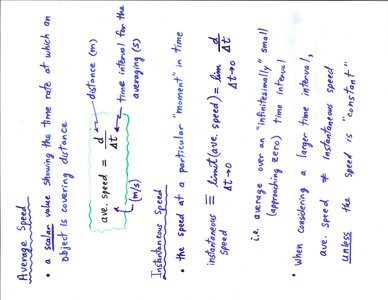 Average Speed
• a scalar value showing the time rate at which an
object is covering distance
ave. speed = d/Δt
distance (m)
time interval for the
averaging (s)
(m/s)
Instantaneous Speed
• the speed at a particular "moment" in time
instantaneous speed ≡ limit (ave. speed) = lim d/Δt
Δt→0 Δt→0
i.e. average over an "infinitesimally" small
(approaching zero) time interval
• when considering a larger time interval,
ave. speed ≠ instantaneous speed
unless the speed is "constant"